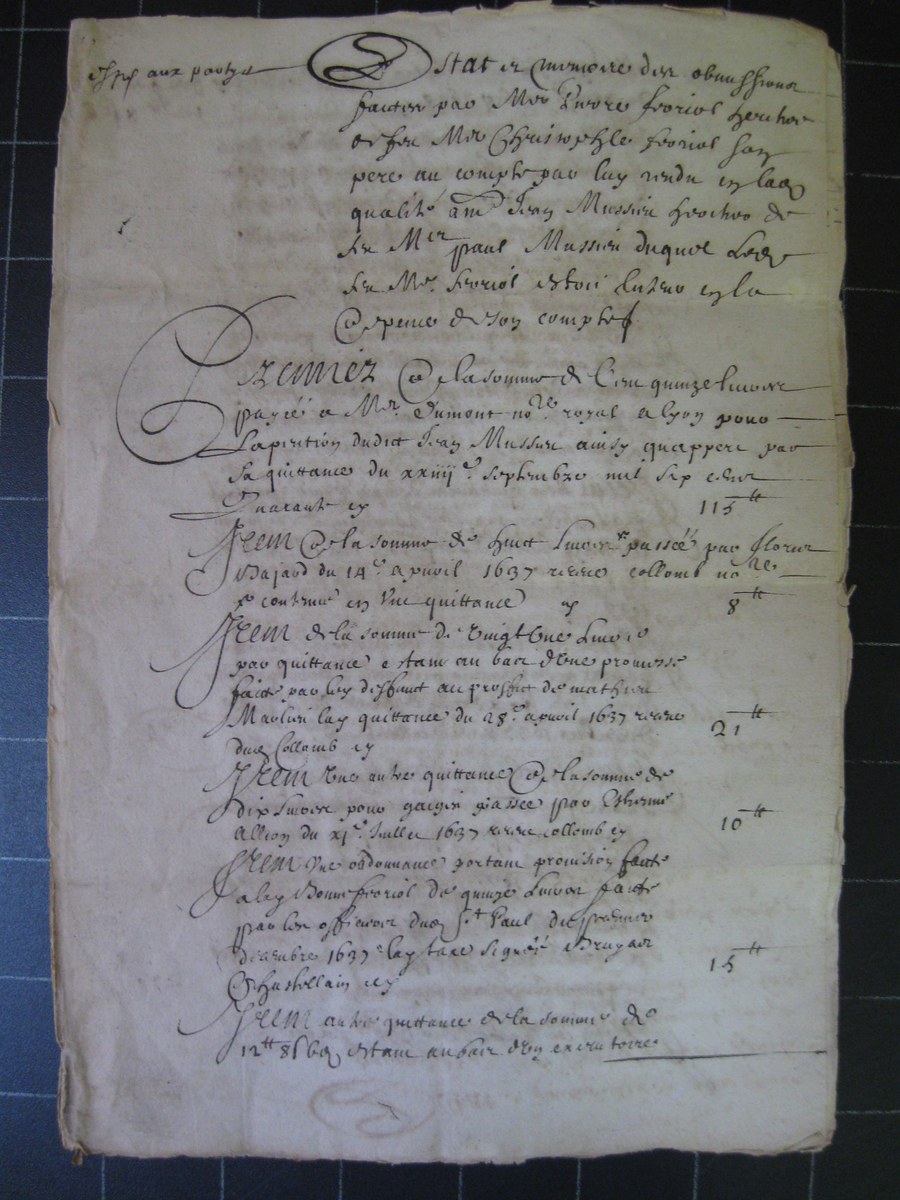 aux partyes
Estat et memoire des obmissions
faictes par Mer Pierre feoriol heritier
de feu Mer Christophle feoriol son
pere au compte par luy rendu en lad
qualité a Me Jean Mussieu heritier de
feu Mer paul Mussieu duquel led
feu Mer feoriol estoit tuteur en la
despence de son compte
Premier de la somme de Cent quinze livres
payée a Mer Dumont nore royal a lyon pour
la pention dudict Jean Mussieu ainsy quappert par
sa quittance du xxiiij e septembre mil six cens
Quarante cy 115 tt
Item de la somme de huict livres passée par
Bajard du 14e apvril 1637 receue collomb nore
contenue en Une quittance cy 8 tt
Item de la somme de vingt Une livre
par quittance estant au bas d'Une promesse
faicte par led deffunct au proffict de mathieu
lad quittance du 28e apvril 1637 receue
dud Collomb cy 21 tt
Item Une autre quittance de la somme de
dix livres pour gaiges passée par Estienne
Allion du xje Juillet 1637 receue collomb cy 10 tt
Item Une ordonnance portant provision faicte
a lad Bonne feoriol de quinze livres faicte
par les officiers dud St Paul du premier
decembre 1637 lad taxe signée Bruyas
Chastellain cy 15 tt
Item autre quittance de la somme de
12 tt 8 s estant au bas d'un executoire